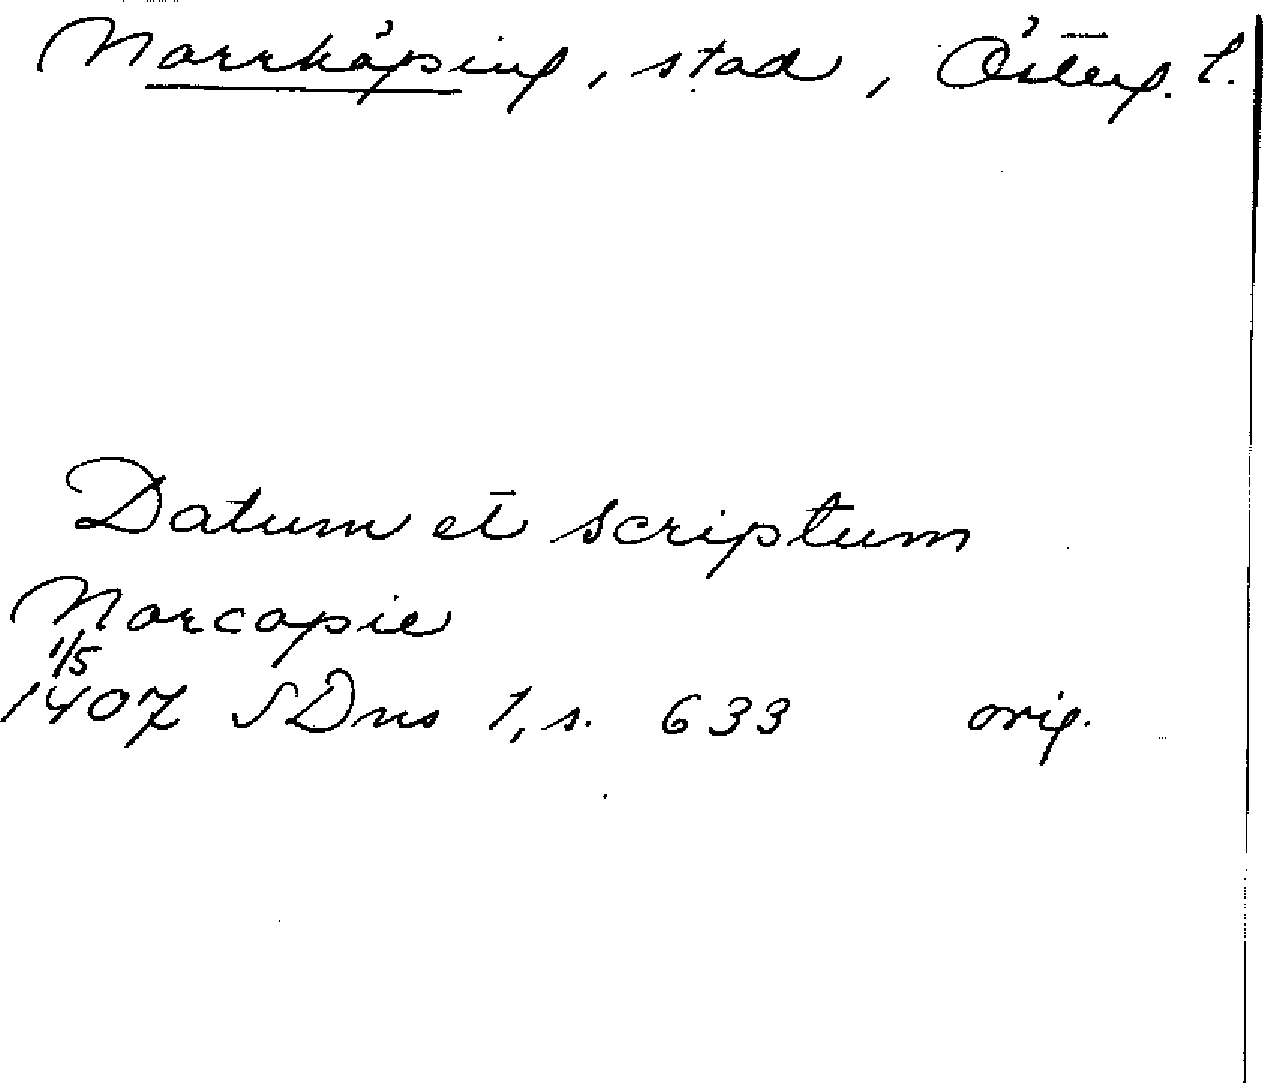 Norrköping, stad, Österg. l.
Datum et scriptum
Norcopie
1/5
1407 SDns 1, s. 633 orig.